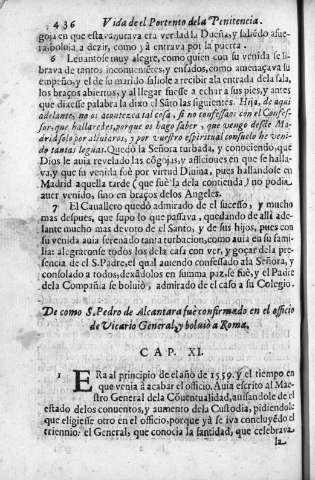 436 Vida de el Portento de la Penitencia.
goja en que esta vaỹurava era verdad la Dueña, y saliēdo afue-
ra, boluia a dezir, como yà entrava por la puerta.
6 Levantose muy alegre, como quien con su venida se li-
brava de tantos inconueniētes, y enfados, como amenaçava su
empeño, y el de su marido saliole a recibir ala entrada dela sala,
los braços abiertos, y al llegar fuesse a echar a sus pies, y antes
que dixesse palabra la dixo el Sāto las siguientes. Hija, de aqui
adelante, no os acontezca tal cosa, si no confessaos con el Confes-
sor, que hallaredes, porque os hago saber, que vengo desde Ma-
drid solo por aliuiaros, y por vuestro espiritual consuelo he veni-
do tantas leguas. Quedò la Señora turbada, y conociendo, que
Dios le auia revelado las cōgojas, y aflicciones en que se halla-
va, y que su venida fuè por virtud Divina, pues hallandose en
Madrid aquella tarde (que fuè la dela contienda) no podia
auer venido, sino en braços de los Angeles.
7 El Cauallero quedò admirado de el sucesso, y mucho
mas despues, que supo lo que passava, quedando de alli ade-
lante mucho mas devoto de el Santo, y de sus hijos, pues con
su venida auia serenado tanta turbacion, como auia en su fami-
lia: alegraronse todos los dela casa con ver, y goçar dela pre-
sencia de el S. Padre, el qual auiendo confessado ala Señora, y
consolado a todos, dexādolos en summa paz, se fuè, y el Padre
dela Compañia se boluiò, admirado de el caso a su Colegio.
De como S. Pedro de Alcantara fuè confirmado en el officio
de Vicario General, y boluiò a Roma.
CAP. XI.
1 ERa al principio de el año de 1559. y el tiempo en
que venia à acabar el officio. Auia escrito al Mae-
stro General dela Cōuentualidad, auisandole de el
estado delos conuentos, y aumento dela Custodia, pidiendole
que eligiesse otro en el officio, porque yà se iva concluyēdo el
triennio: el General, que conocia la santidad, que celebrava
la